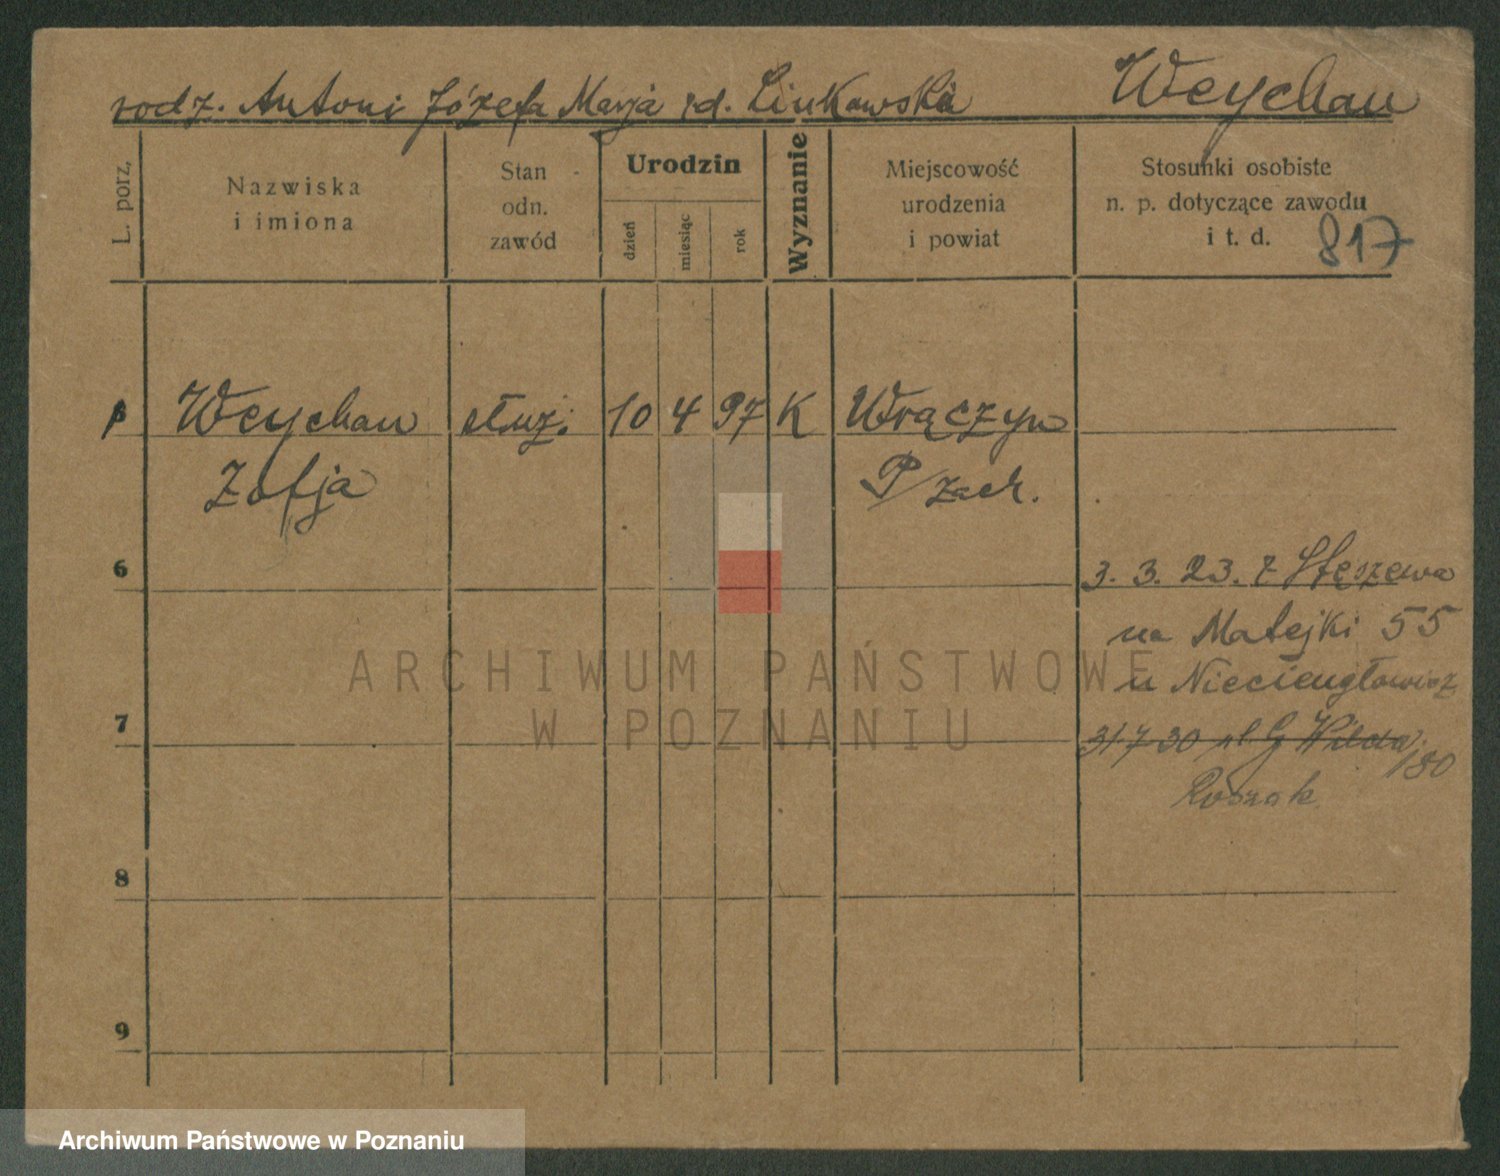 Weychan
rodz. Antoni Józefa Marja rd. Linkowska
L. porz.
Nazwiska
i imiona
Stan
odn.
zawód
Urodzin
dzień
miesiąc
rok
Wyznanie
Miejscowość
urodzenia
i powiat
Stosunki osobiste
n. p. dotyczące zawodu
i t. d.
817
Weychan służ. 10 4 97 K Wrączyn
Zofja P/zach.
6
3. 3. 23. z Stęszewa
na Matejki 55
u Niecięngłowicz
7
31 7 30 G Wilda 180
Roszak
8
9
ARCHIWUM PAŃSTWOWE
W POZNANIU
Archiwum Państwowe w Poznaniu